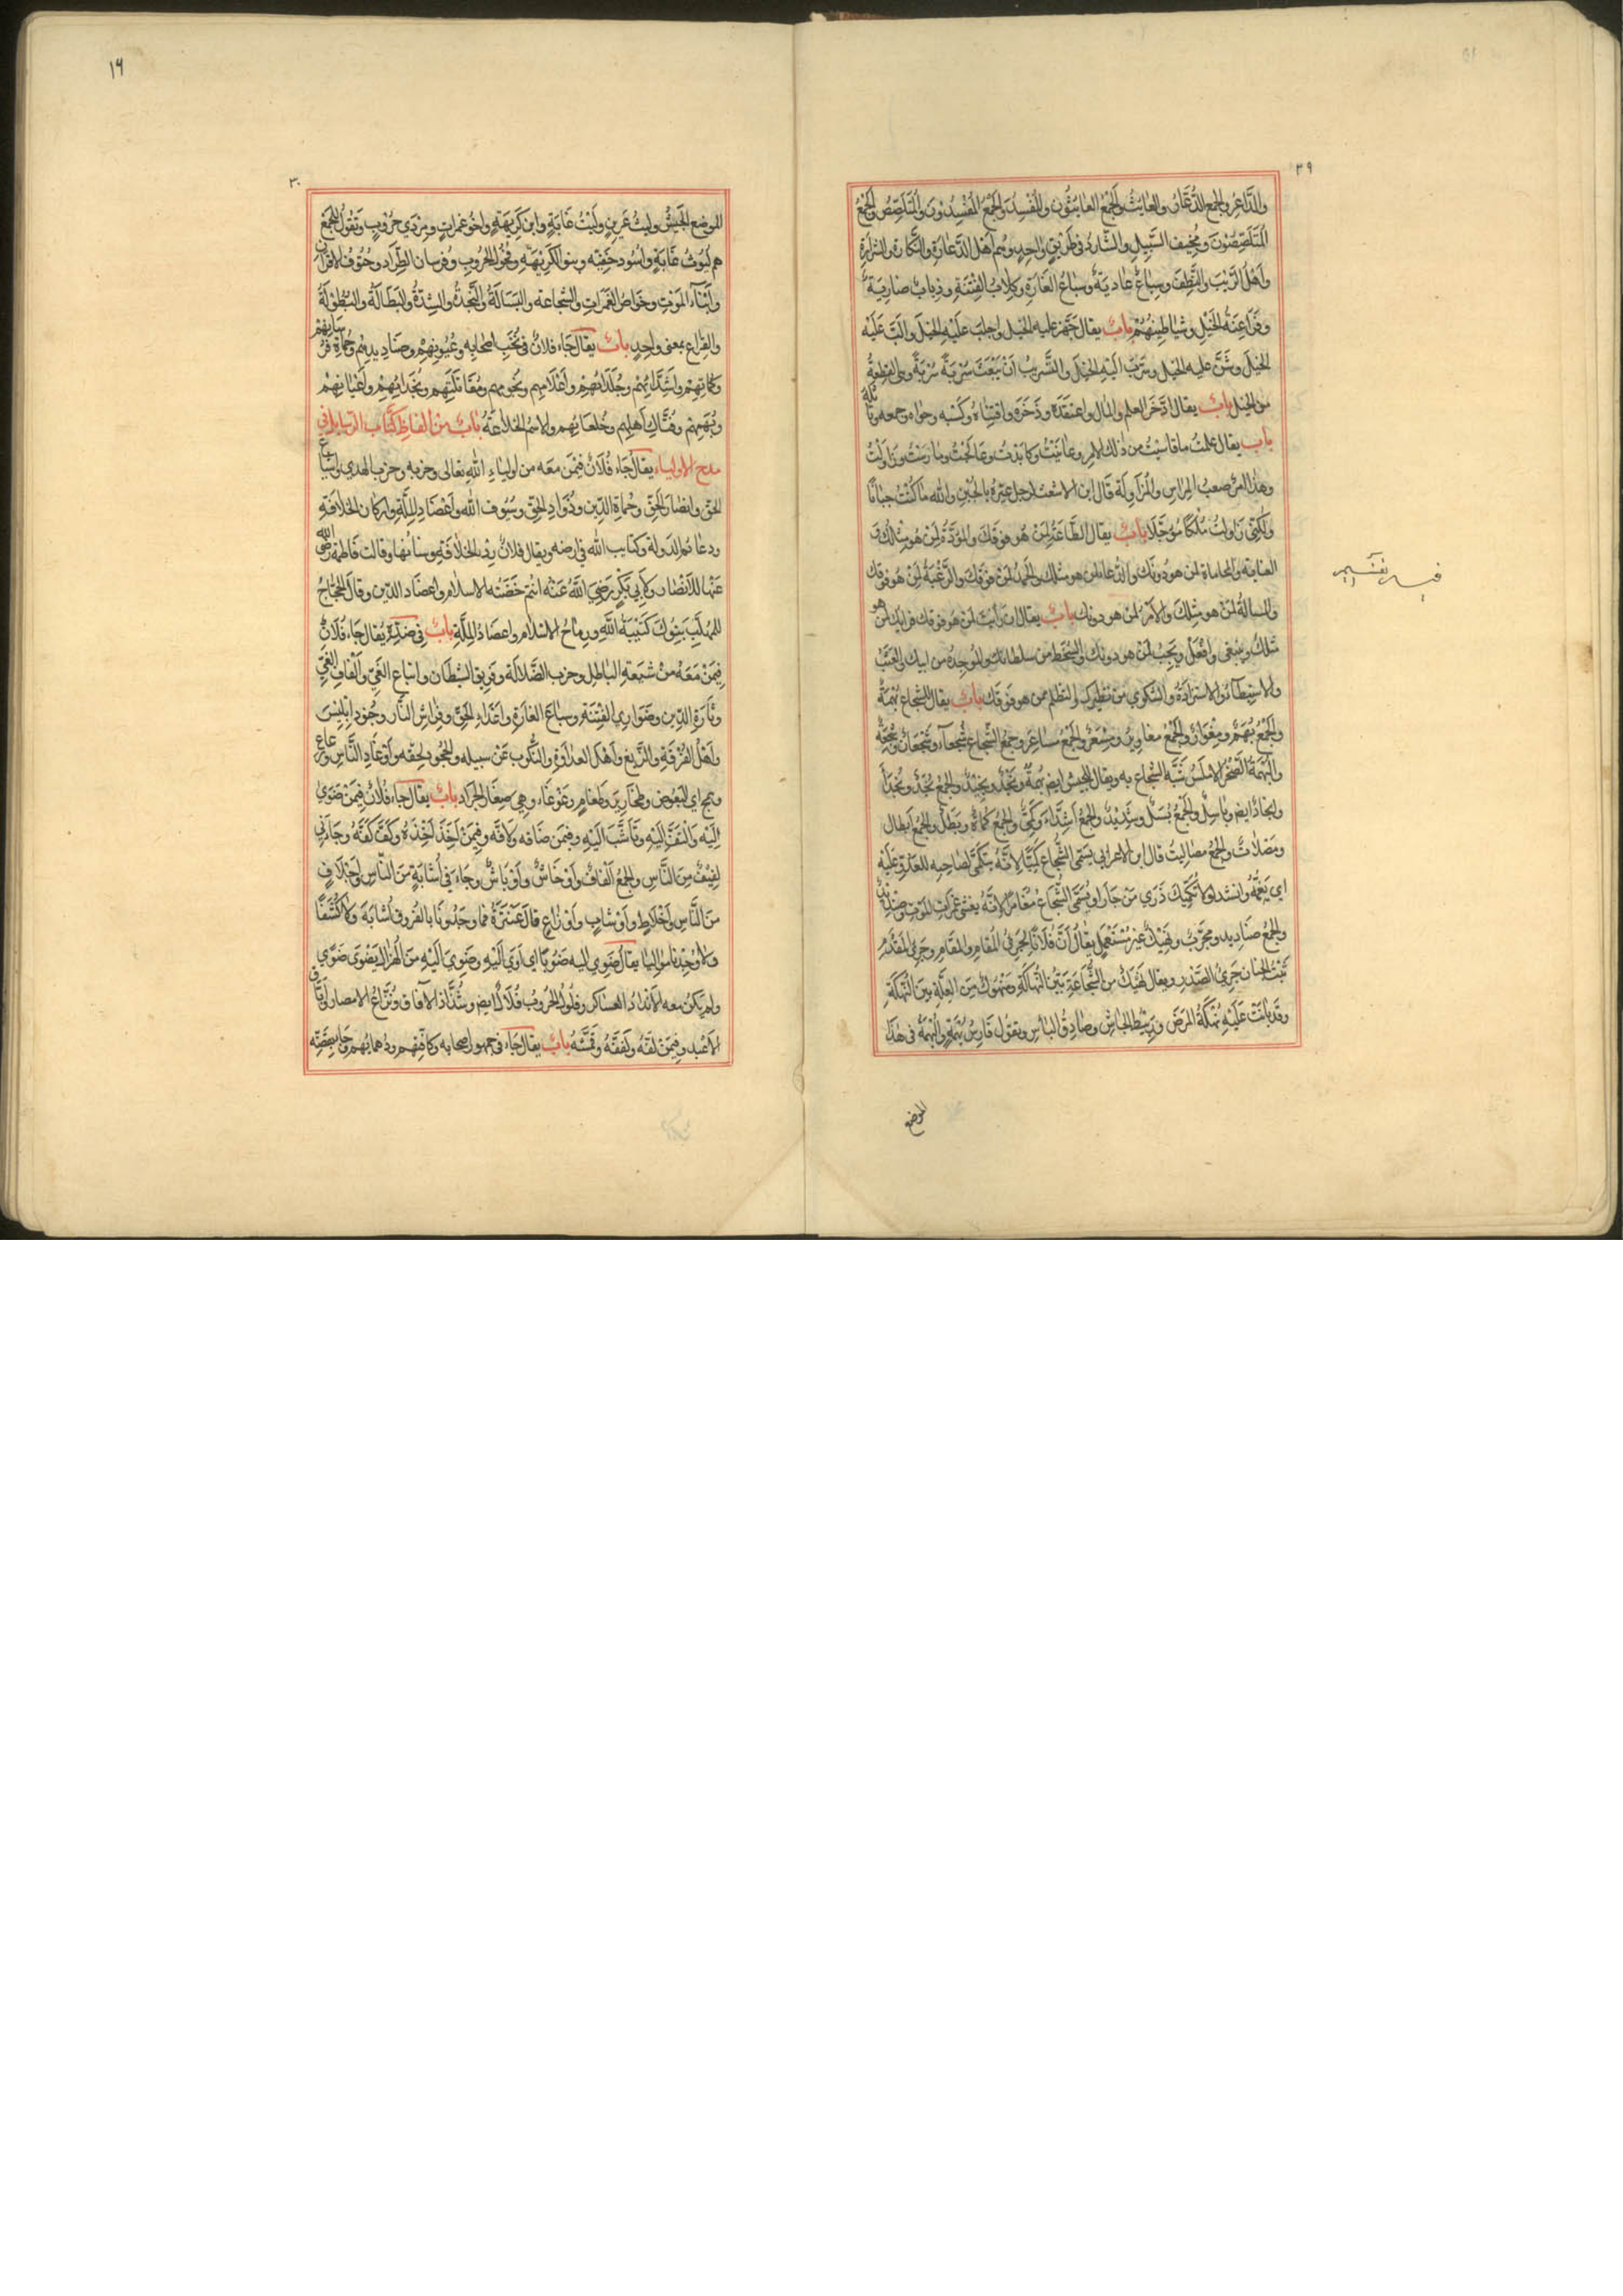 ٢٩
والدَّاعِرُ والجمع الدُّعَّارُ والعابثُ والجمعُ العابثُونَ والمُفسِدُ والجمعُ المُفسِدُونَ والمُتَلَصِّصُ والجَمْعُ
المُتَلَصِّصُونَ ومُخِيفُ السَّبِيلِ والشَّاردُ في طريقٍ واحدٍ وهم اهل الدَّعَارَةِ والنَّكارةِ والشَّرارَةِ
واَهْلُ الرِّيَبِ والنَّطفِ وسِبَاعٌ عَادِيَةٌ وسِبَاعُ الغَارَةِ وكِلابُ الفِتْنَةِ وذِيابٌ ضارِيَةٌ
وفَرَاعِنَةُ الخَيْلِ وشَياطِينُهُمْ بابٌ يقال جَهَّزَ عليه الخيل واجلَبَ عَلَيْهِ الخيلَ والَّبَ عَلَيْهِ
الخيلَ وشَنَّ عليه الخيل وسَرَّبَ اليهِ الخيلَ والتَّسْرِيبُ اَنْ يَبْعَثَ سُرْبَةً سُرْبَةً وهي القِطعةُ
من الخيل بابٌ يقال ادَّخَرَ العلم والمال واعتقدَهُ وذَخَرَهُ واقتناهُ وكَسَبَه وحواه وجمعه وتاَثَّلَهُ
باب يقال علمتُ ما قاسيْتُ من ذلك الامر وعانيتُ وكابدْتُ وعالَجْتُ ومارَسْتُ وزاولْتُ
وهذا امرٌ صعبُ المِراسِ والمُزَاوَلَةِ قال ابن الاشعث لرجل عَيَّرَهُ بالجُبْنِ والله ما كُنْتُ جبانًا
ولكِنِّي زاولتُ مُلْكًا مُؤَجَّلًا بابٌ يقال الطَّاعَةُ لِمَنْ هُوَ فَوْقَكَ والمَوَدَّةُ لِمَنْ هُوَ مِثْلُكَ و
العناية والمحاماة لمن هو دُونَكَ والاذعان لمن هو مثلك والحَمْدُ لِمَنْ فَوْقَكَ والرَّغْبَةُ لِمَنْ هُوَ فَوْقَكَ
والمسالةُ لمن هو مِثْلَكَ والامْرُ لمن هو دونك بابٌ يقال ان رايتَ لمن هُوَ فوقك فرايك لمن هو
مثلك وينبغي وافْعَلْ ويَجِبُ لمن هو دونك والسخط من سلطانك والموجدةُ من ابيك والعَتْبُ
والاستبطاءُ والاستزادةُ والشكوي من نظيرك والتظلم ممن هو فَوْقَكَ بابٌ يقال للشجاع بُهْمَةٌ
والجَمْعُ بُهَمٌ ومِغْوَارٌ والجَمْعُ مغاويرُ ومِسْعَرٌ والجمعُ مساعِرُ وجمعُ الشُّجاعِ شُجَعَآءُ وشُجْعَانٌ وشِجْعَةٌ
والبُهْمَةُ الصَّخْرُ الاملَسُ شُبِّهَ الشجاع به ويقال للجيش ايض بُهْمَةٌ ونَجْدٌ ونَجِيْدٌ والجَمْعُ نُجُدٌ ونُجَدَآءُ
وانجادٌ ايض وباسِلٌ والجَمعُ بُسَّلٌ وشَدِيْدٌ والجمعُ اَشِدَّاءُ وكَمِيٌّ والجمعُ كُمَاةٌ وبَطَلٌ والجمعُ اَبطال
ومِصْلاتٌ والجمعُ مَصَالِيتُ قال ابو الاعرابي يُسَمَّى الشُّجَاعُ كَمِيًّا لِاَنَّهُ يَتَكَمَّى لِصاحِبِه للعَدُوِّ عَلَيْهِ
والجمعُ صَنادِيد ومجرَّبٌ ونَهِيْكٌ غيرُ مُسْتَعْمَلٍ يقالُ اَنَّ فُلَانًا لَجَرِيُّ المُقَامِ والمُقَامِ وجَرِيُّ المُقْدَمِ
ثَبْتُ الجَنانِ جَرِيُّ الصَّدرِ ويقال نَهِيْكٌ من الشُّجَاعَةِ بَيِّنُ النَّهَاكَةِ ومَنْهُوكٌ مِنَ العِلَّةِ بَيِّنُ النَّهْكَةِ
وقد بانَتْ عَلَيْهِ نُهْكَةُ المَرَضِ ورَبِيْطُ الجَاشِ وصَادِقُ البَاْسِ ويقُولُ فَارِسُ بُهْمَةٍ والبُهْمَةُ في هٰذَا
الموضع
٣٠
١٩
الموضع الجَيْشُ وليثُ عَرِينٍ ولَيْثُ غَابَةٍ وابنُ كَرِيْهَةٍ واَخُو غَمَراتٍ ومِرْدَي حُرُوبٍ وتَقُولُ للجَمْعِ
هم لُيُوثُ غَابَةٍ واُسُودُ خَفِيَّه وبنو الكَرِيْهَةِ وفُحُولُ الحُرُوبِ وفُرسان الطِّرَادِ وحُتُوفُ الاقرانِ
واَبْنَآءُ المَوْتِ وخَوَّاضُ الغَمَرَاتِ والشَّجاعة والبَسَالَةُ والنَّجْدَةُ والشِّدَّةُ والبَطَالَةُ والبُطُوْلَةُ
والقِراع بمعنى واحِدٍ بابٌ يقال جَاءَ فلانٌ في نُخَبِ اصحابِه وعُيُونِهِمْ وصَنادِيدِهِمْ وحُمَاةِ فُرْسَانِهِمْ
وكُمَاتِهِمْ واَشِدَّائِهُمْ وجُلَدَائِهِمْ واَعْلَامِهِم ونُجُومِهِم ومُقَاتَلَتِهِم ونُجَدَائِهِمْ واَعْيَانِهِمْ
وبُهَمِهِمْ وفُتَّاكِ اَهلِهِم وخُلَعَائِهِم والاسمُ الخَلَاعَةُ بابٌ من الفاظِ كُتَّاب الرّسايل في
مدح الاولياء يقال جَاءَ فُلَانٌ فِيْمَنْ معَه من اولياءِ اللّهِ تعالى وحزبه وحزب الهدي واَشياع
الحق وانصار الحَقِّ وحُماةِ الدِّين وذُوَّادِ الحَقِّ وسُيُوفِ اللّه واَعْضَادِ المِلَّةِ واركان الخلافَةِ
ودعائم الدَولة وكتايب اللّه في ارضه ويقال فلانٌ رِدْءُ الخِلافَةِ وسِنانُها وقالت فاطمة رضي اللّه
عنها للانصار ولِاَبِي بَكْرٍ رَضِيَ اللَّهُ عَنْهُ انتم حَضَنَةُ الاسلام واعضاد الدِّين وقال الحَجَّاجُ
للمُهَلَّبِ بَنُوكَ كَتِيْبَةُ اللّهِ ورِمَاحُ الاسْلام واعضادُ المِلَّةِ بابٌ في ضدِّهِ يُقال جَاءَ فُلَانٌ
فِيْمَنْ مَعَهُ مِنْ شيعةِ الباطِلِ وحزب الضَّلالَةِ وفَرِيقِ الشيطانِ واتباع الغَيِّ والْفَافِ الغَيِّ
ومَارَقةِ الدِّينِ وضَوَارِي الفِتْنَةِ وسباع الغارَةِ واَعْدَاءِ الحَقِّ وفِرَاشِ النَّارِ وجُنُودِ اِبْلِيْسَ
واَهْلُ الفُرْقَةِ والزَّيغِ واَهْلُ العَداوَةِ والنُّكُوبِ عَنْ سبيله والجُحُودِ لحقِّه واَوْغَادِ النَّاسِ ورعاع
وهَمَجٍ اي البَعُوضِ وطخارِيرَ وطَغَامٍ وغَوْغَاءَ وهي صِغارُ الجَرَادِ بابٌ يقال جَاءَ فُلَانٌ فِيمَنْ ضَوَي
اِلَيْهِ والْتَفَّ اِلَيْهِ وتَاَشَّبَ اِلَيْهِ وفِيمَن ضَافَه ولَافَّه وفِيْمَنْ اَخَذَ اَخْذَهُ وكَفَّ كَفَّهُ وجَاءَني
لفِيْفٌ مِنَ النَّاسِ والجمعُ اَلْفَافٌ واَوْخَاشٌ واَوْبَاشٌ وجَاءَ في اُشَابَةٍ مِنَ النَّاسِ واَخْلَافٍ
مِنَ النَّاسِ واَخْلَاطٍ واَوْشابٍ واَوْزاعٍ قال عَنْتَرَةُ فما وجَدُونا بالفُروقِ اُشَابَةً ولا كُشُفًا
ولا وُجِدْنا مَوَالِيا يقالُ ضَوِي اليه ضُوِيًّا اي اَوَي اِلَيْهِ وضَوِيَ اِلَيْهِ مِنَ الهُزال يَضْوَى ضَوًي
ولم يكن معه الا نُدَّادُ العَسَاكرِ وفُلُولُ الحُرُوبِ فُلَّالًا ايض وشُذَّاذ الآفاق ونُزَّاعُ الامصار
الاعْبُدِ وفِيْمَنْ لَفَّهُ ولَفَفَهُ وقَمَّشَهُ بابٌ يقال جَاءَ في جمهور اصحابه وكَافَّتِهم ودُهمائِهِم وجَاءَ بِقَضِّه